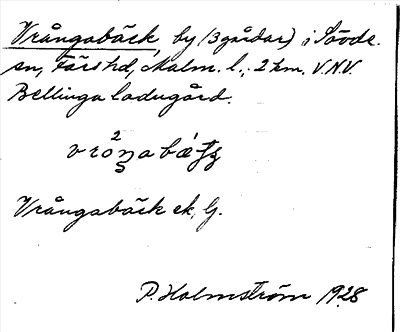 Vrångabäck, by (3 gårdar) i Sövde
sn, Färs hd, Malm. l., 2 km. V.N.V.
Bellinga ladugård.
Vrångabäck ek, lj.
P. Holmström 1928